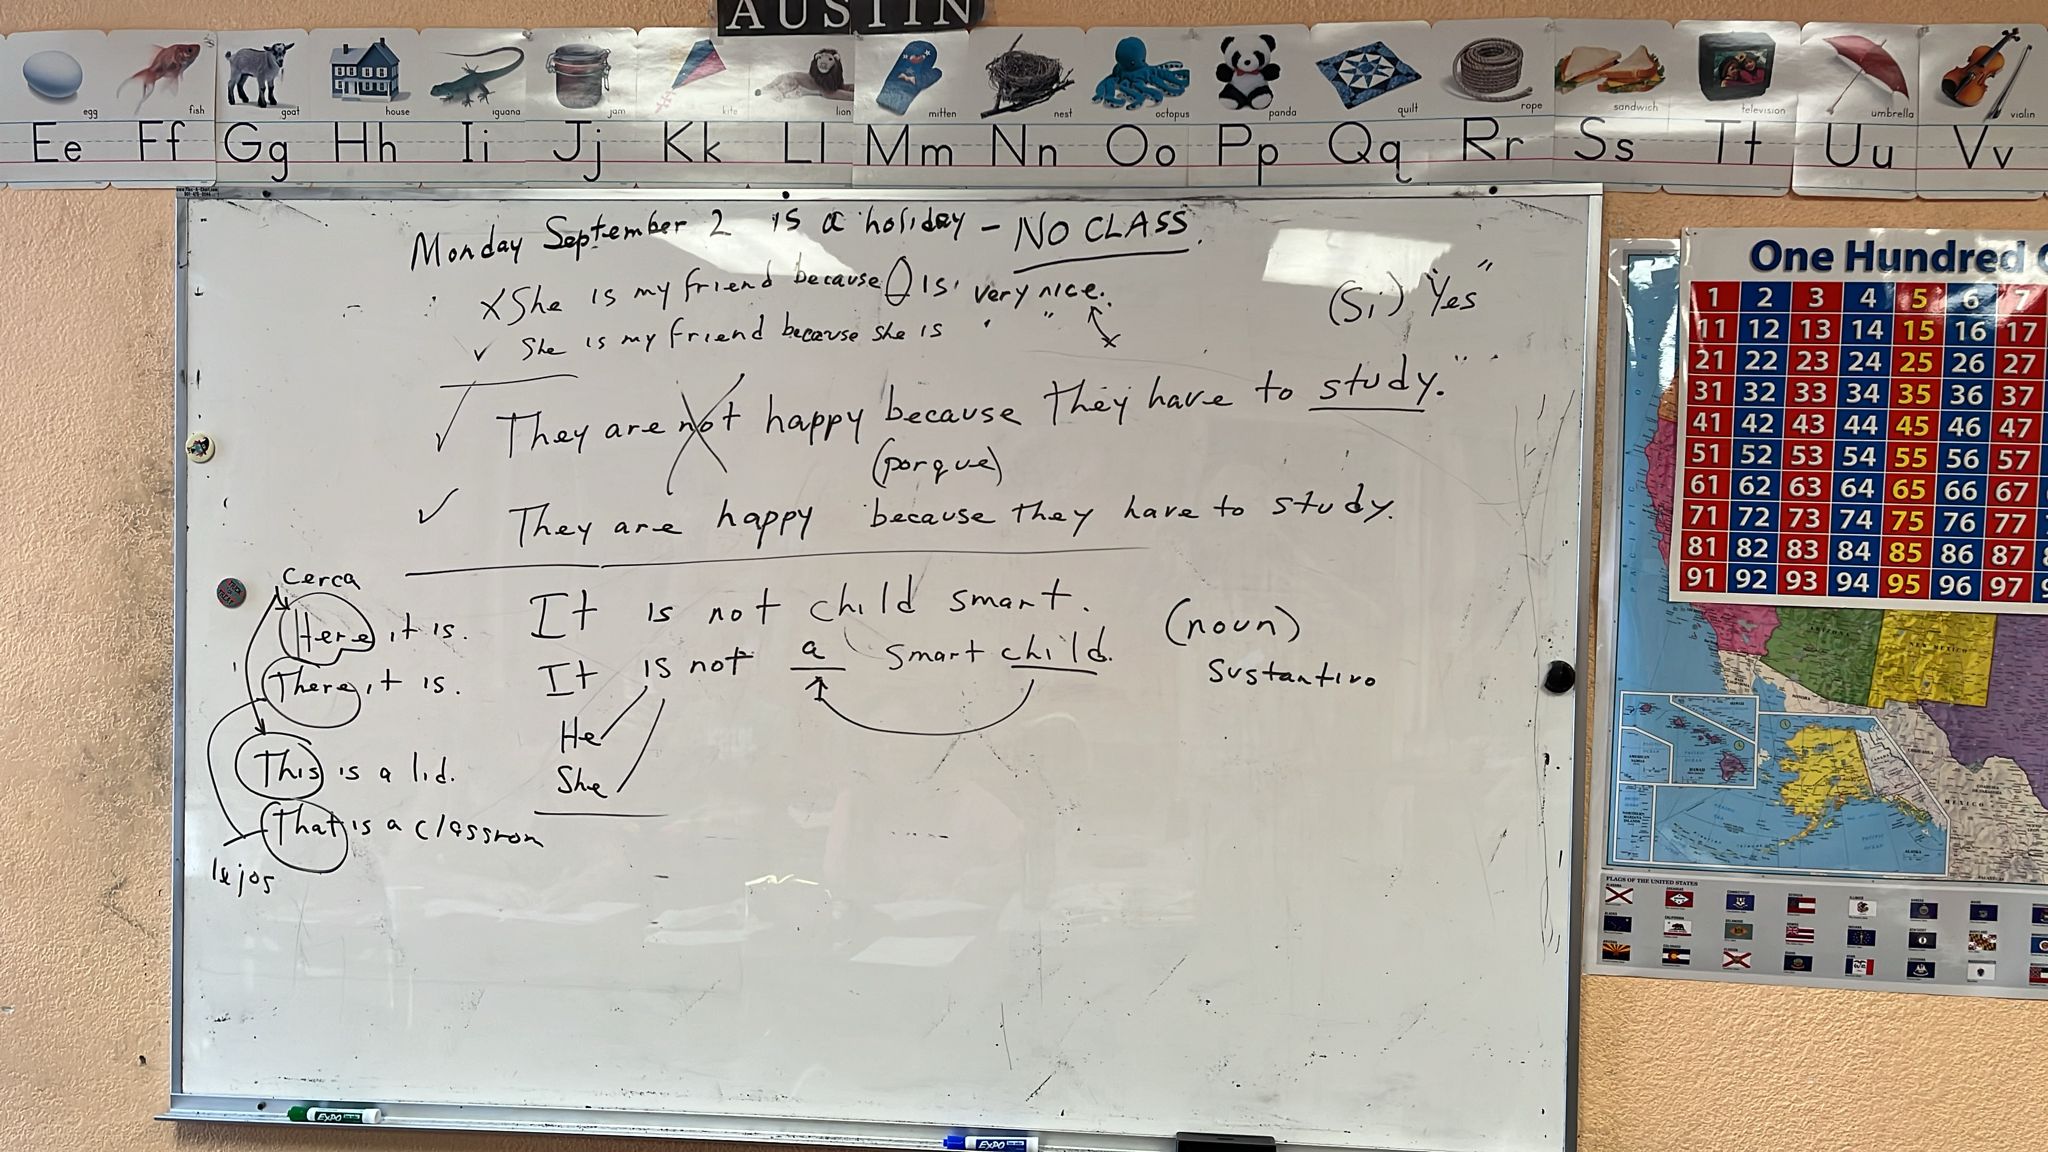 AUSTIN
egg fish goat house iguana jam kite lion mitten nest octopus panda quilt rope sandwich television umbrella violin
Ee Ff Gg Hh Ii Jj Kk Ll Mm Nn Oo Pp Qq Rr Ss Tt Uu Vv
Monday September 2 is a holiday - NO CLASS.
X She is my friend because is very nice.
(Si) "Yes"
✓ She is my friend because she is " "
✓ They are not happy because they have to study."
(porque)
✓ They are happy because they have to study.
cerca
Here it is.
There it is.
This is a lid.
That is a classrom
lejos
It is not child smart.
It is not a smart child.
He
She
(noun)
sustantivo
One Hundred
1 2 3 4 5 6 7
11 12 13 14 15 16 17
21 22 23 24 25 26 27
31 32 33 34 35 36 37
41 42 43 44 45 46 47
51 52 53 54 55 56 57
61 62 63 64 65 66 67
71 72 73 74 75 76 77
81 82 83 84 85 86 87
91 92 93 94 95 96 97
ARIZONA
NEW MEXICO
MEXICO
FLAGS OF THE UNITED STATES
EXPO
EXPO